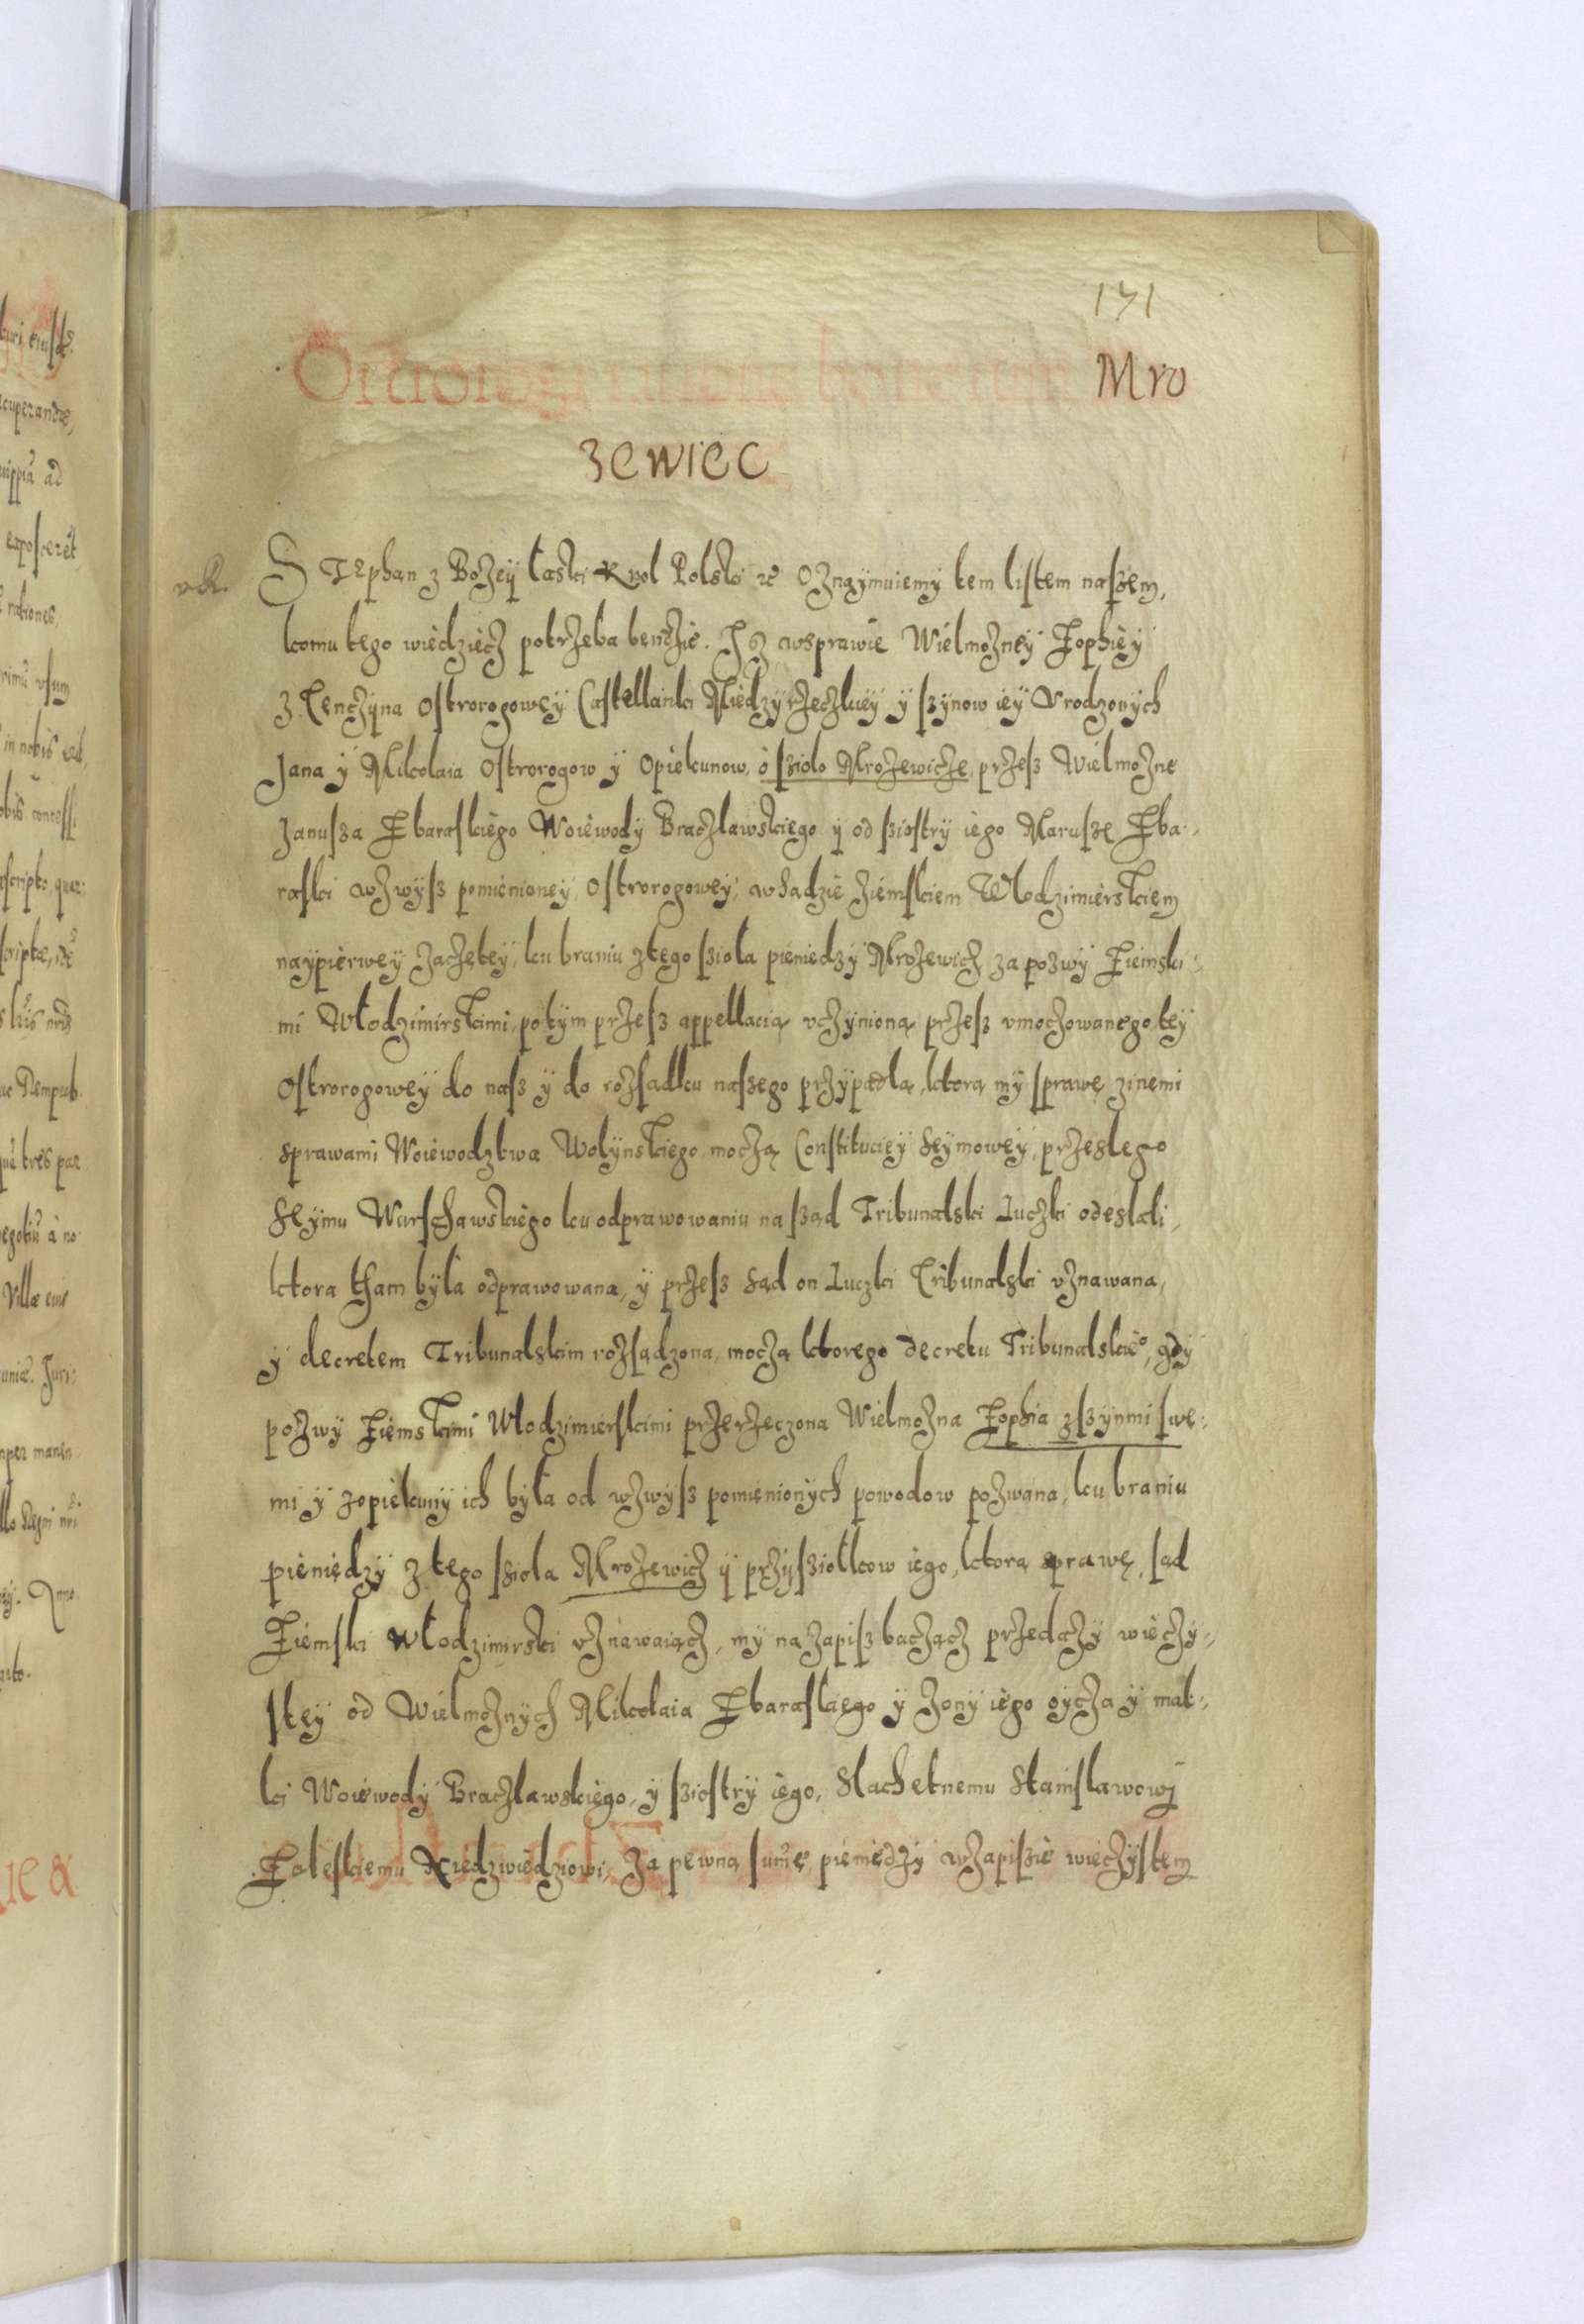 171
Mro
zewiec
STephan z Bożeÿ łaski Krol Polski etc Oznaÿmuiemÿ tem listem naszem,
komu tego wiedziecz potrzeba bendzie. Isz wsprawie Wielmożneÿ Zophieÿ
z Tenczÿna Ostrorogoweÿ Castellanki Miedzÿrzeczkieÿ ÿ szÿnow ieÿ Vrodzonÿch
Jana ÿ Mikolaia Ostrorogow ÿ Opiekunow, o sziolo Mrozewicze, przesz Wielmożne
Janusza Zbaraskiego Woiewodÿ Braczlawskiego ÿ od sziostrÿ iego Marusze Zba-
raski wzwÿsz pomienioneÿ, Ostrorogoweÿ, wsadzie ziemskiem Wlodzimierskiem
naÿpierweÿ zaczeteÿ, ku braniu ztego sziola pieniedzÿ Mrozewicz za pozwÿ Ziemski-
mi Włodzimirskimi, potÿm przesz appellacią vczÿnioną przesz vmocżowanego teÿ
Ostrorogoweÿ do nasz ÿ do rozsadku naszego przÿpadla, ktorą mÿ sprawę zinemi
sprawami Woiewodztwa Wolÿnskiego moczą Constitucieÿ seÿmoweÿ, przeslego
Seÿmu Warschawskiego ku odprawowaniu na sząd Tribunalski Luczki odeslali,
ktora tham bÿla odprawowana, ÿ przesz sąd on Luczki Tribunalski vznawana,
ÿ decretem Tribunalskim rozsądzona, moczą ktorego decretu Tribunalskieo, gdÿ
pozwÿ Ziemskimi Wlodzimierskimi przerzeczona Wielmożna Zophia zszÿnmi swe-
mi ÿ zopiekunÿ ich bÿła od wzwÿsz pomienionÿch powodow pozwana, ku braniu
pieniędzÿ z tego sziola Mrozewicz ÿ przÿsziolkow iego, ktorą sprawę, sąd
Ziemski Włodzimirski vznawaiącz, mÿ na zapisz baczącz przedażÿ wieczÿ-
steÿ od Wielmożnÿch Mikolaia Zbaraskiego ÿ żonÿ iego oÿcza ÿ mat-
ki Woiewodÿ Braczlawskiego, ÿ sziostrÿ iego, Slachetnemu Stanislawowi
Zaleskiemu Niedzwiedziowi, za pewną sumę pieniędzÿ wzapiszie wieczÿstem